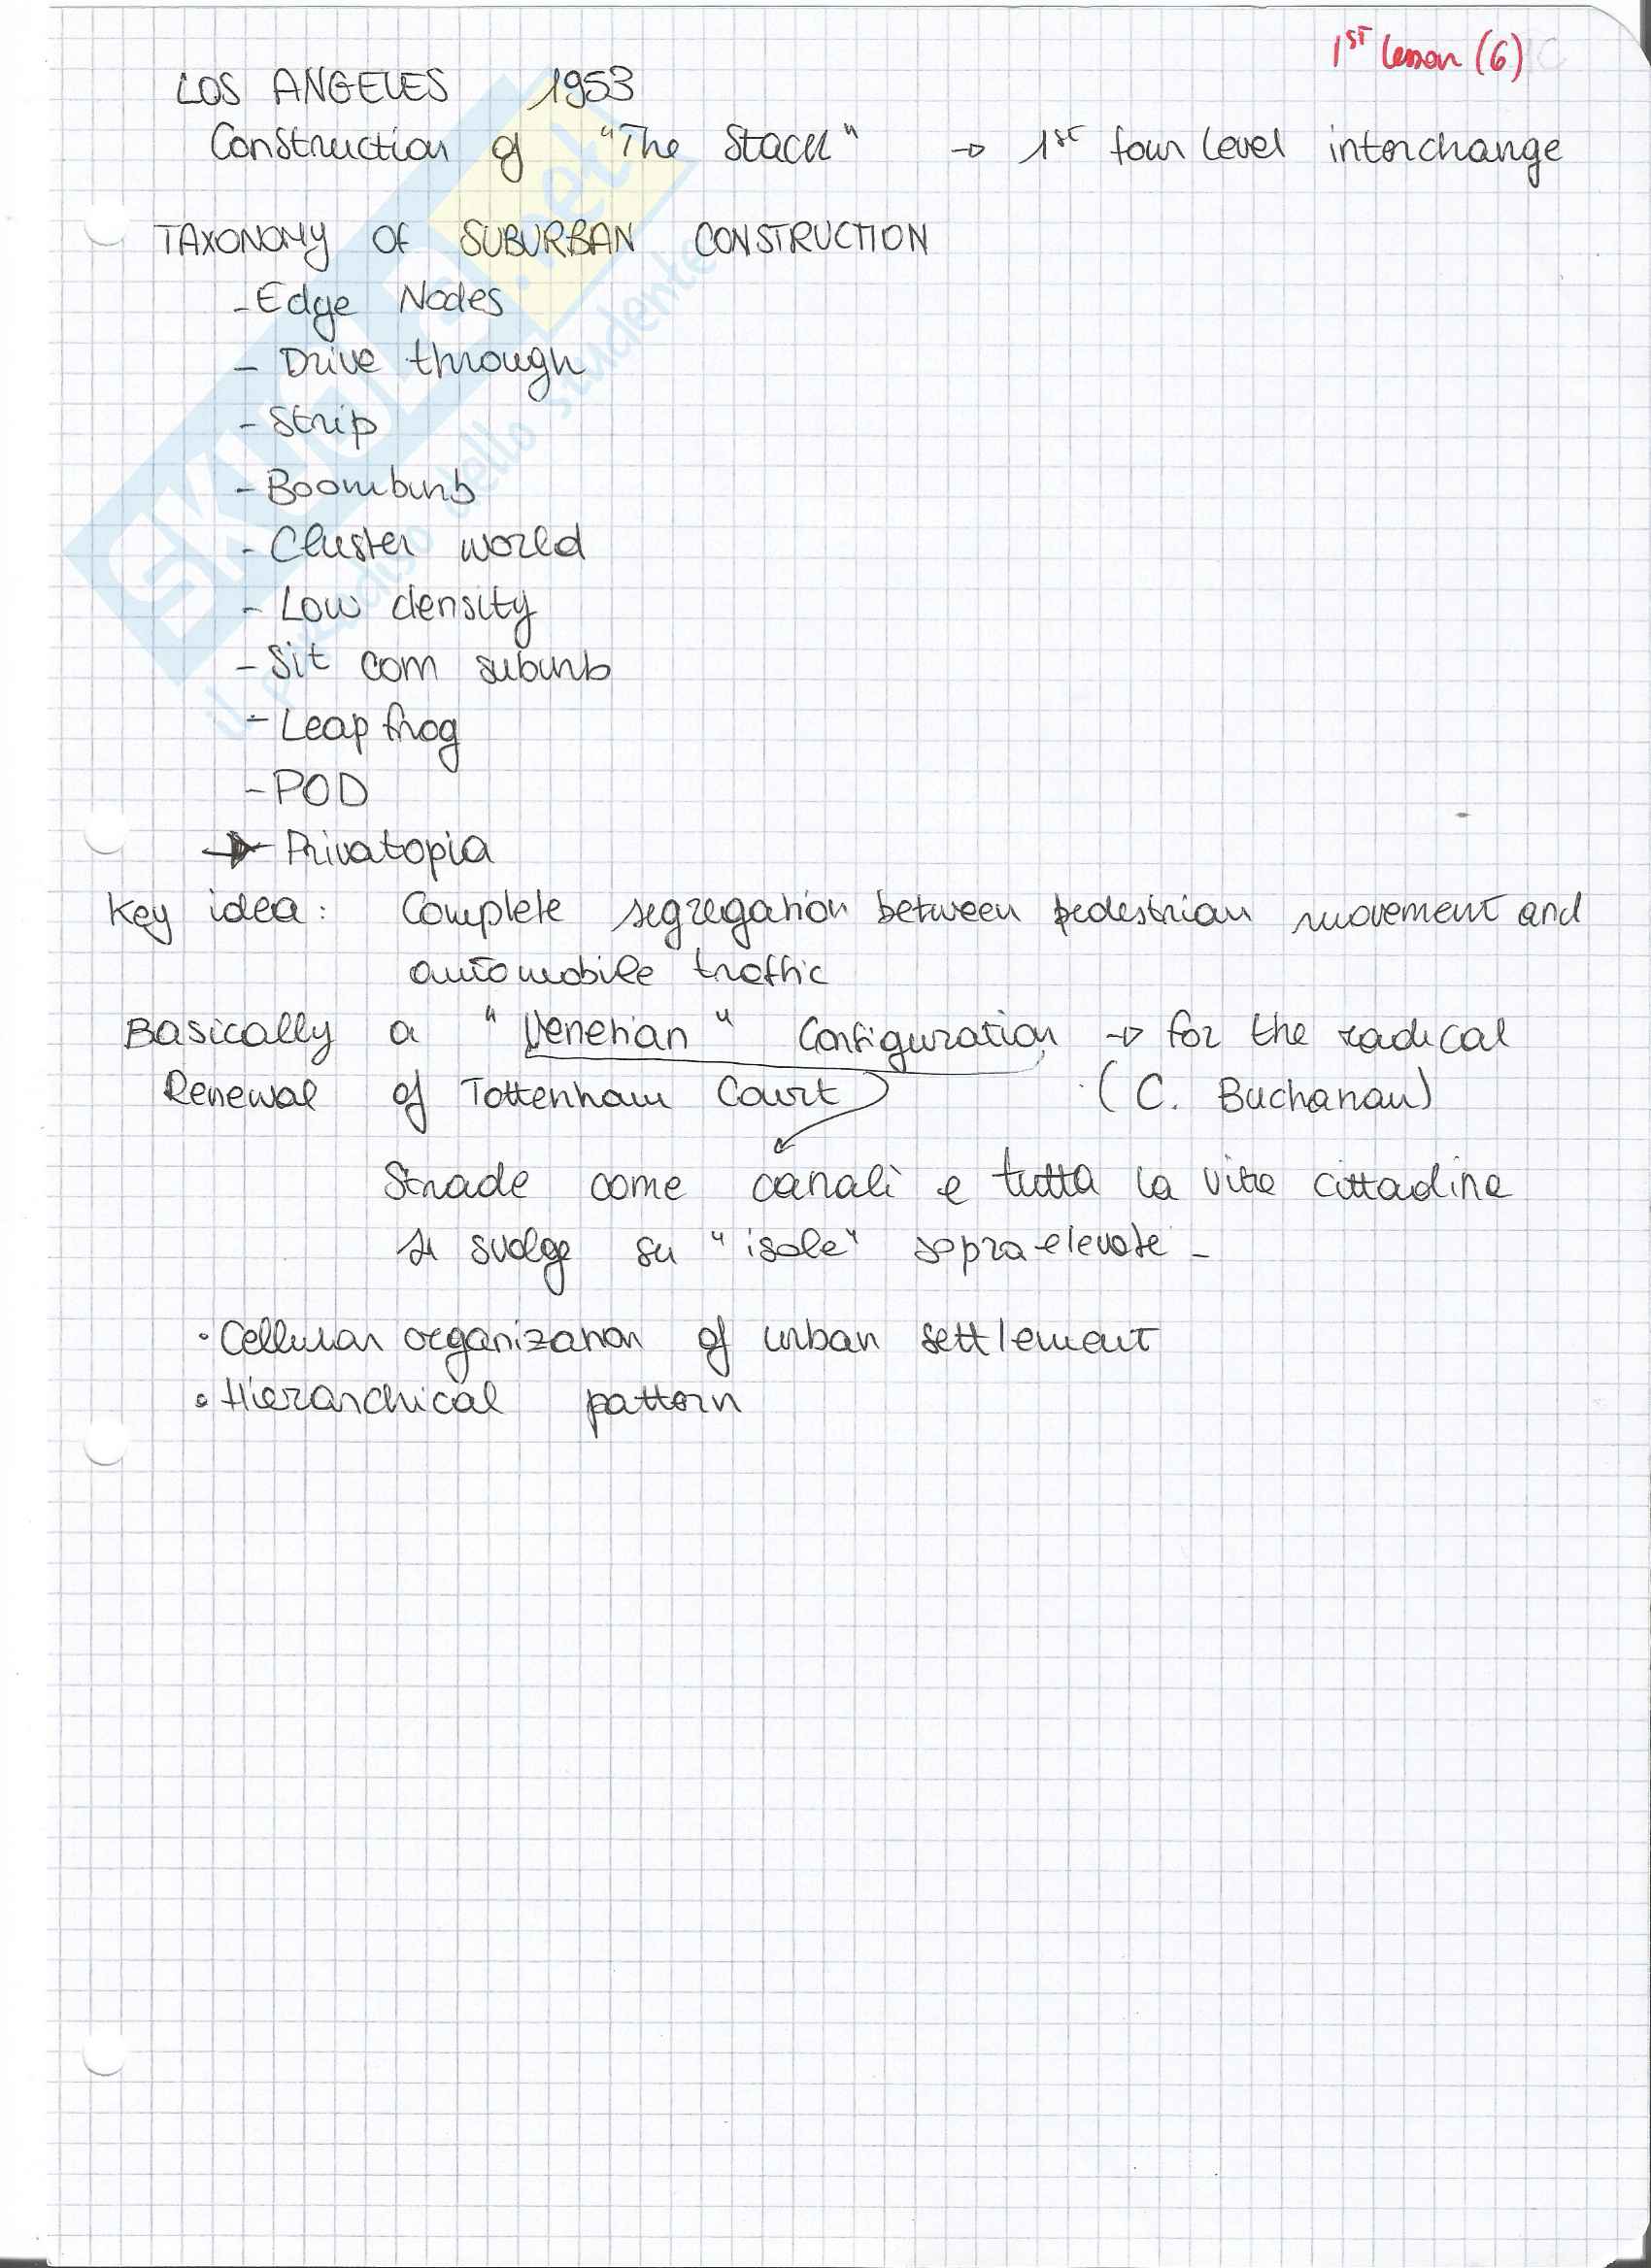 1ST lesson (6)
LOS ANGELES 1953
Construction of "The Stack" → 1st four level interchange
TAXONOMY OF SUBURBAN CONSTRUCTION
- Edge Nodes
- Drive through
- Strip
- Boomburb
- Cluster world
- Low density
- Sit com suburb
- Leap frog
- POD
→ Privatopia
Key idea: Complete segregation between pedestrian movement and
automobile traffic
Basically a "Venetian" Configuration → for the radical
Renewal of Tottenham Court (C. Buchanan)
Strade come canali e tutta la vita cittadina
si svolge su "isole" sopraelevate -
• Cellular organization of urban settlement
• Hierarchical pattern
SKUOLA.net
il paradiso dello studente